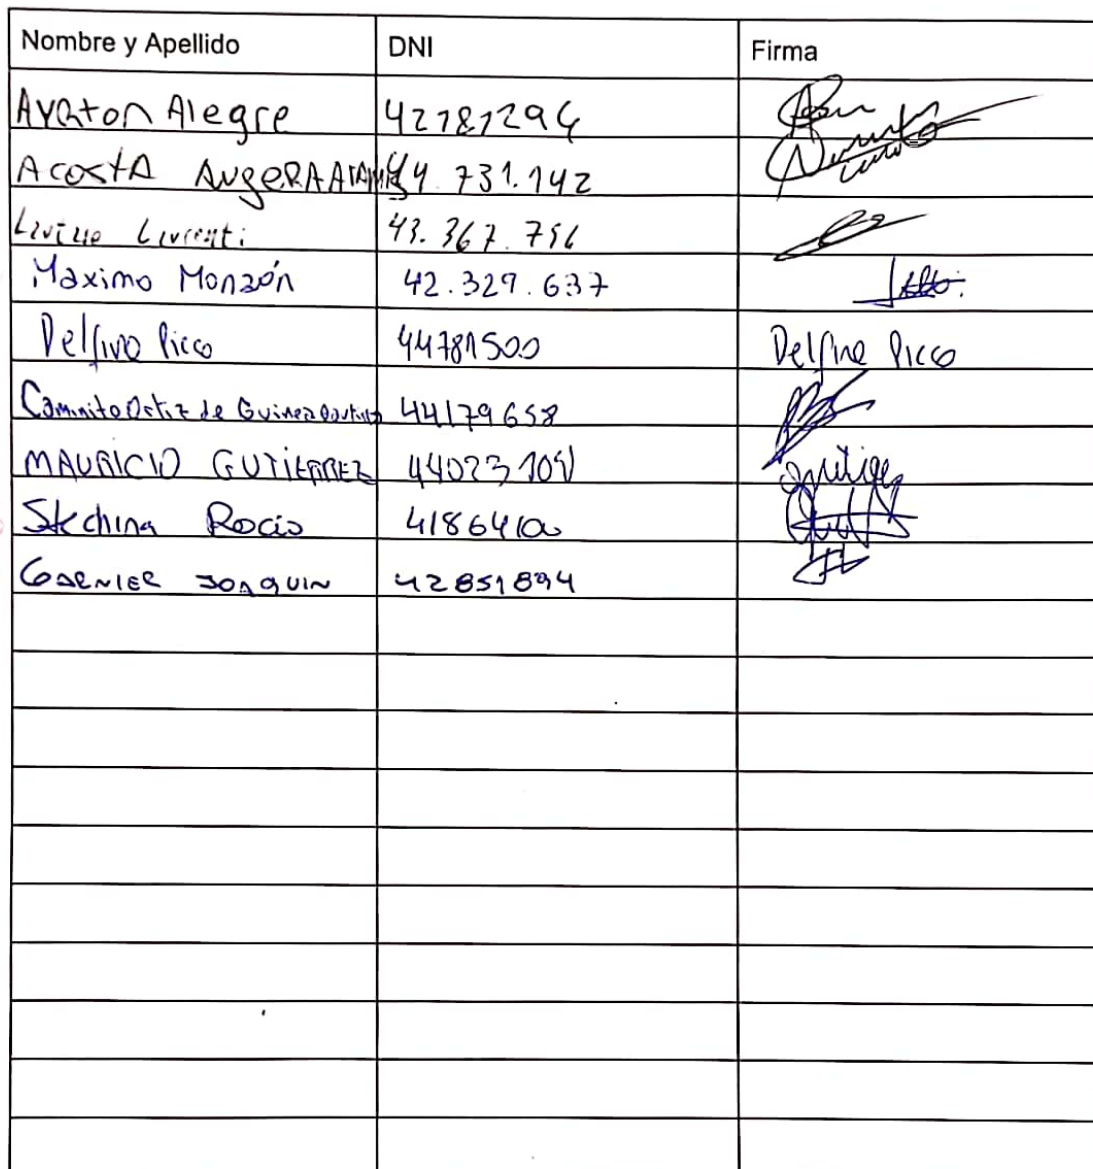 Nombre y Apellido DNI Firma
Ayrton Alegre 42787294
Acosta 44.731.142
43.367.756
Maximo Monzón 42.329.637
Delfina Picco 44781500 Delfina Picco
Caminito Ortiz de Guinea 44179658
MAURICIO GUTIERREZ 44023
Stechina Rocio 41864100
GARNIER JOAQUIN 42851894